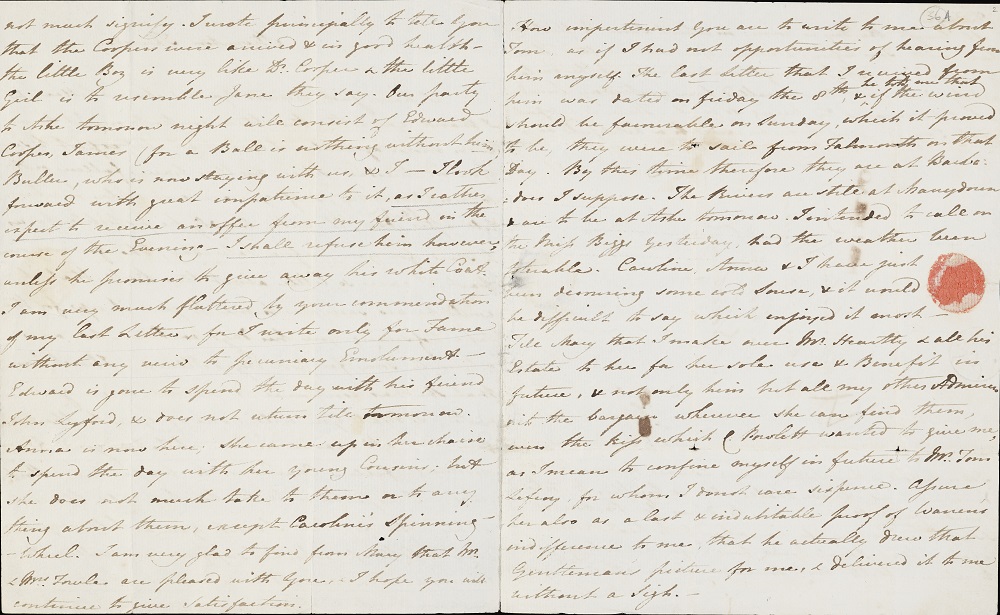 not much signify. I wrote principally to tell you
that the Coopers were arrived & in good health –
the little Boy is very like Dr. Cooper & the little
Girl is to resemble Jane, they say. Our party
to Ashe tomorrow night will consist of Edward
Cooper, James (for a Ball is nothing without him)
Buller, who is now staying with us, & I – I look
forward with great impatience to it, as I rather
expect to receive an offer from my friend in the
course of the Evening – I shall refuse him however,
unless he promises to give away his white Coat.
I am very much flattered by your commendation
of my last Letter, for I write only for Fame
without any view to pecuniary Emolument –
Edward is gone to spend the day with his friend
John Lyford, & does not return till tomorrow.
Anna is now here; she came up in her chaise
to spend the day with her young Cousins; but
she does not much take to them or to any
thing about them, except Caroline's Spinning-
-wheel. I am very glad to find from Mary that Mr.
& Mrs. Fowle are pleased with you. I hope you will
continue to give satisfaction.
36A
2
How impertinent you are to write to me about
Tom, as if I had not opportunities of hearing from
him myself. The last Letter that I received from
him was dated on friday the 8th, & he told me that if the wind
should be favourable on Sunday, which it proved
to be, they were to sail from Falmouth on that
Day. By this time therefore they are at Barba-
-does I suppose. The Rivers are still at Manydown
& are to be at Ashe tomorrow. I intended to call on
the Miss Biggs yesterday, had the weather been
tolerable. Caroline, Anna & I have just
been devouring some cold Souse, & it would
be difficult to say which enjoyed it most –
Tell Mary that I make over Mr. Heartley & all his
Estate to her for her sole use & Benefit in
future, & not only him but all my other Admirers
into the bargain wherever she can find them,
even the kiss which C Powlett wanted to give me,
as I mean to confine myself in future to Mr. Tom
Lefroy, for whom I donot care sixpence. Assure
her also as a last & indubitable proof of Warren's
indifference to me, that he actually drew that
Gentleman's picture for me, & delivered it to me
without a Sigh. –